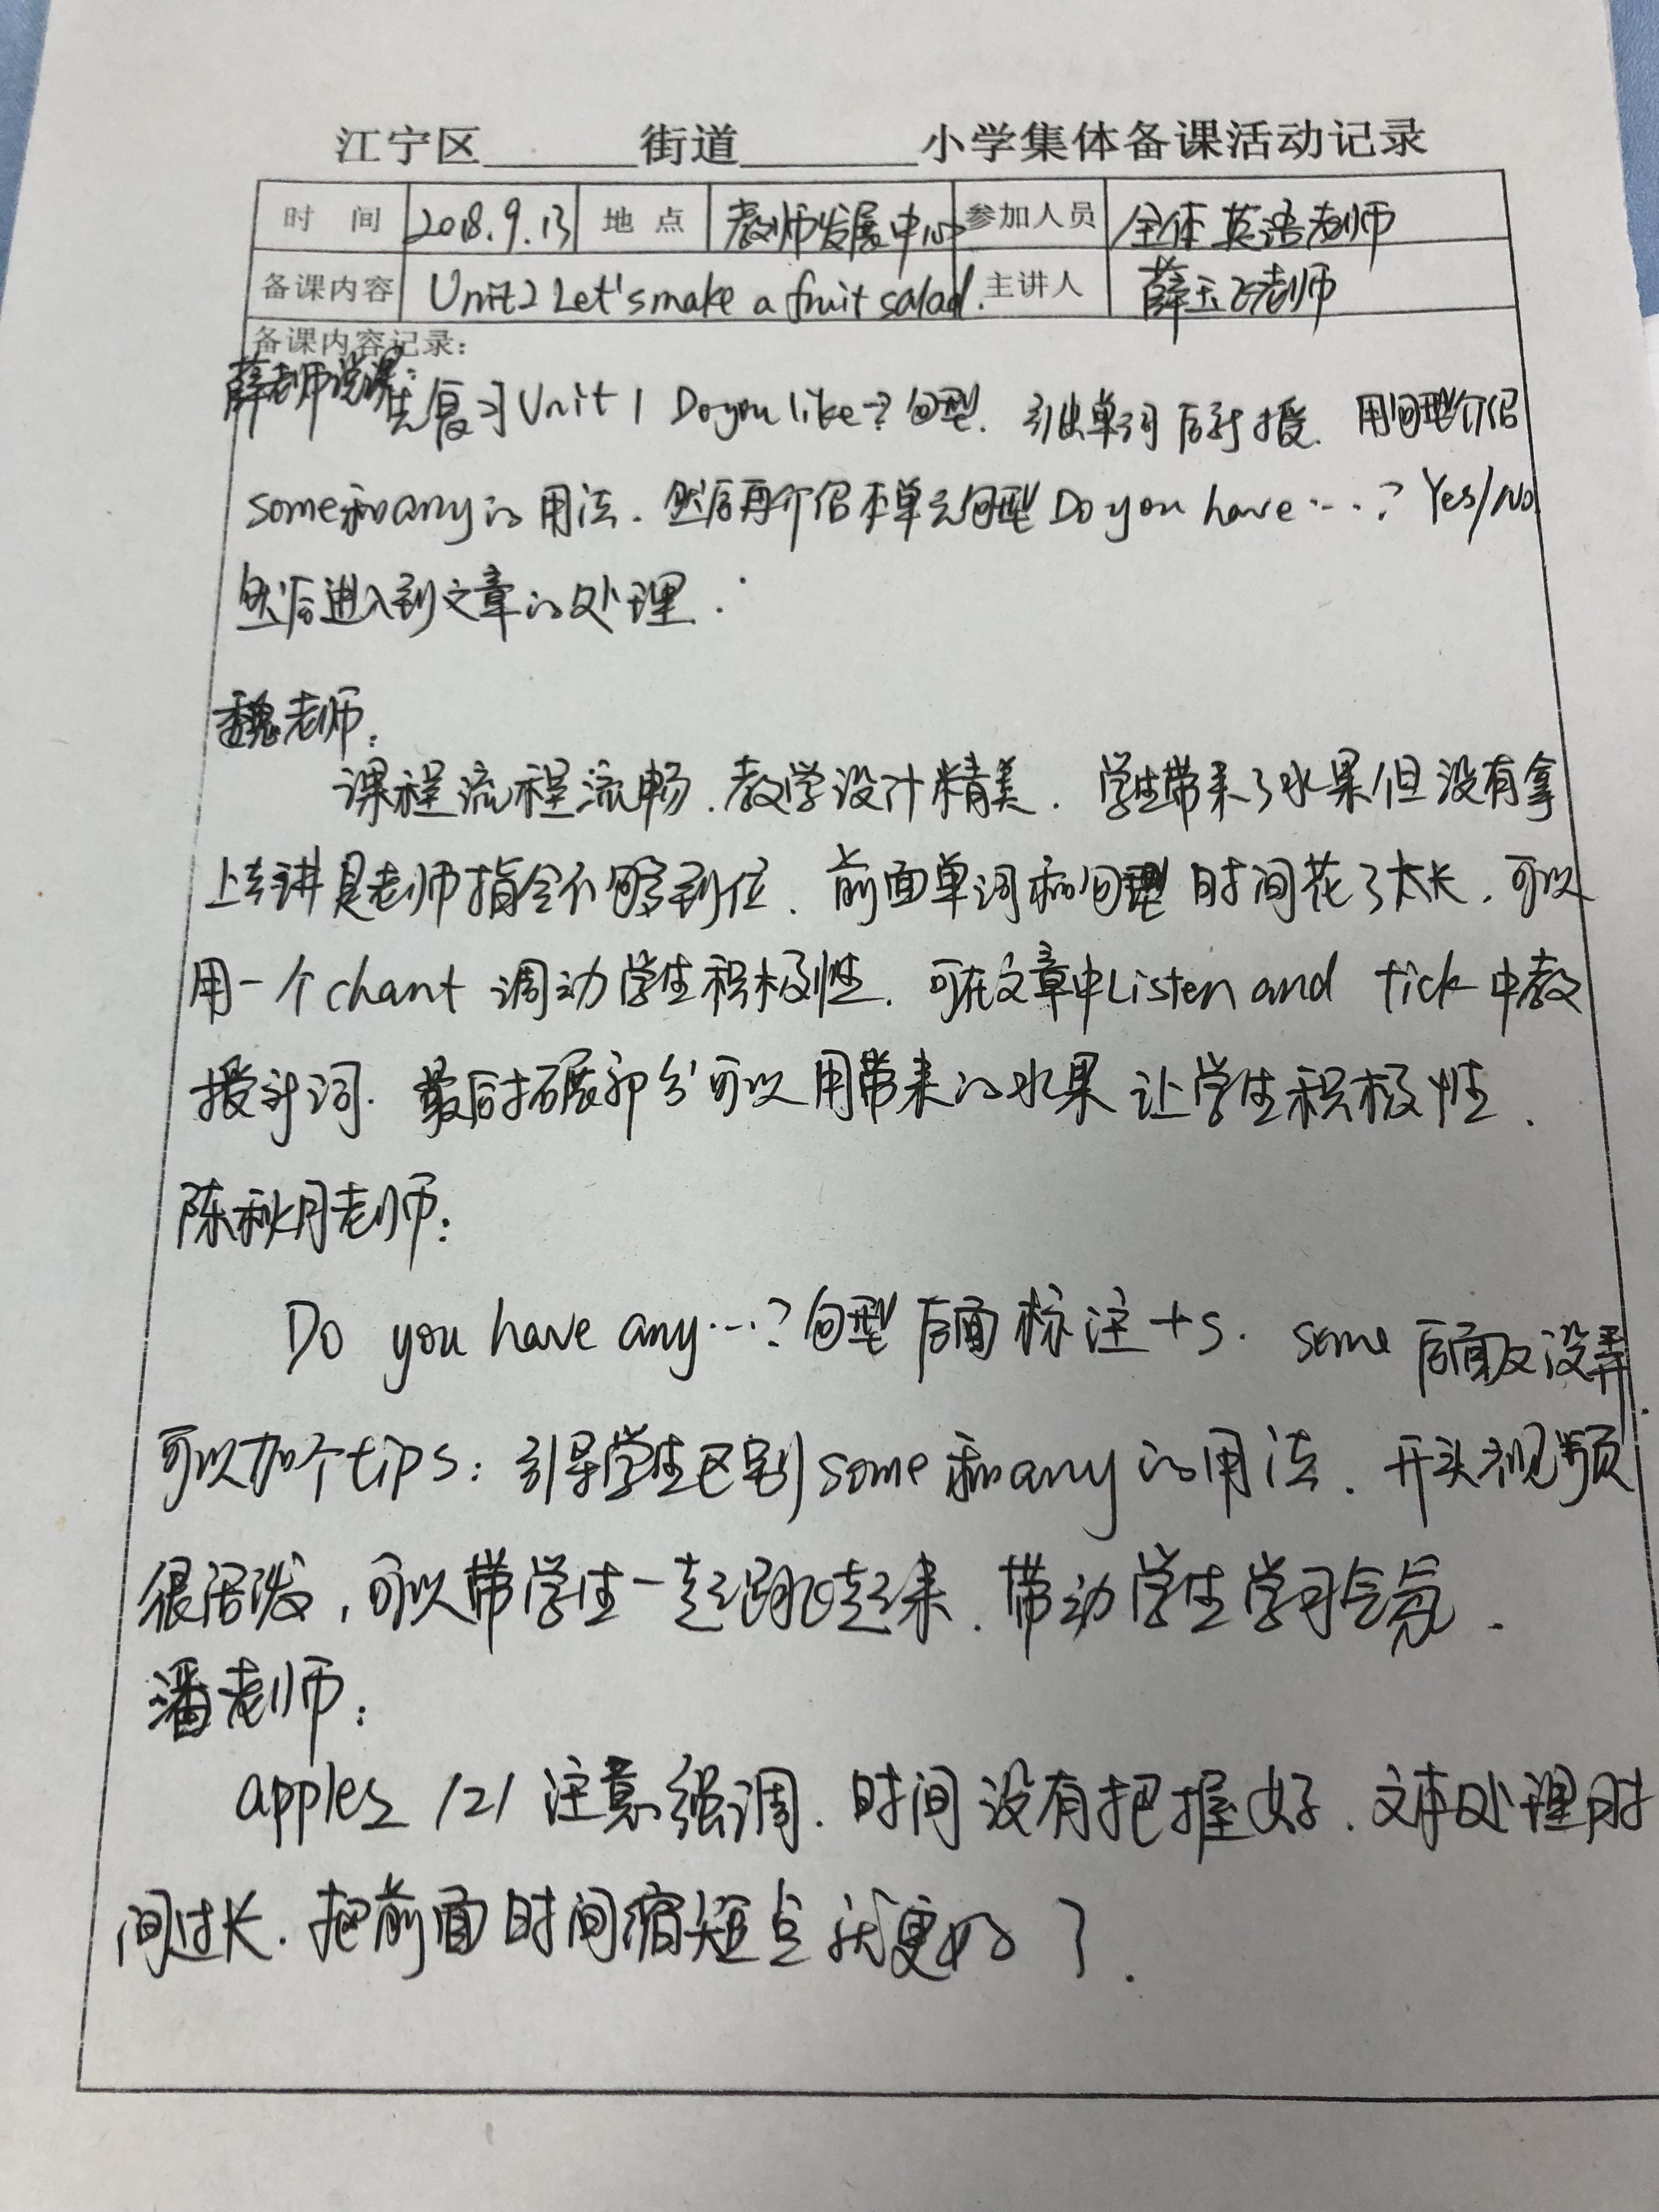 江宁区______街道_______小学集体备课活动记录
时 间 2018.9.13 地 点 教师发展中心 参加人员 全体英语老师
备课内容 Unit2 Let's make a fruit salad. 主讲人 薛玉飞老师
备课内容记录:
薛老师说课:
先复习Unit 1 Do you like…?句型. 引出单词后教授. 用句型介绍
some和any的用法. 然后再介绍本单元句型 Do you have …? Yes/No
然后进入到文章的处理.
魏老师:
课程流程流畅.教学设计精美. 学生带来了水果但没有拿
上去讲是老师指令不够到位. 前面单词和句型时间花了太长.可以
用一个chant 调动学生积极性. 可在文章中Listen and tick中教
授新词. 最后拓展部分可以用带来的水果让学生积极性.
陈秋月老师:
Do you have any…?句型后面标注+s. some后面反没弄.
可以加个tips: 引导学生区别some和any的用法. 开头视频
很活泼,可以带学生一起跳起来.带动学生学习气氛.
潘老师:
apples /z/ 注意强调. 时间没有把握好.文本处理时
间过长.把前面时间缩短点就更好了.